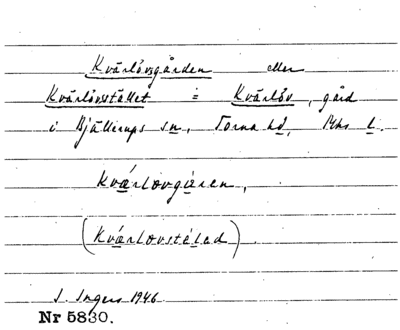 Kvärlövsgården eller
Kvärlövstället = Kvärlöv, gård
i Bjällerups sn, Torna hd, Mhs l.
Kvárlovgáren,
(Kvárlovstéled)
I. Ingers 1946
Nr 5830.